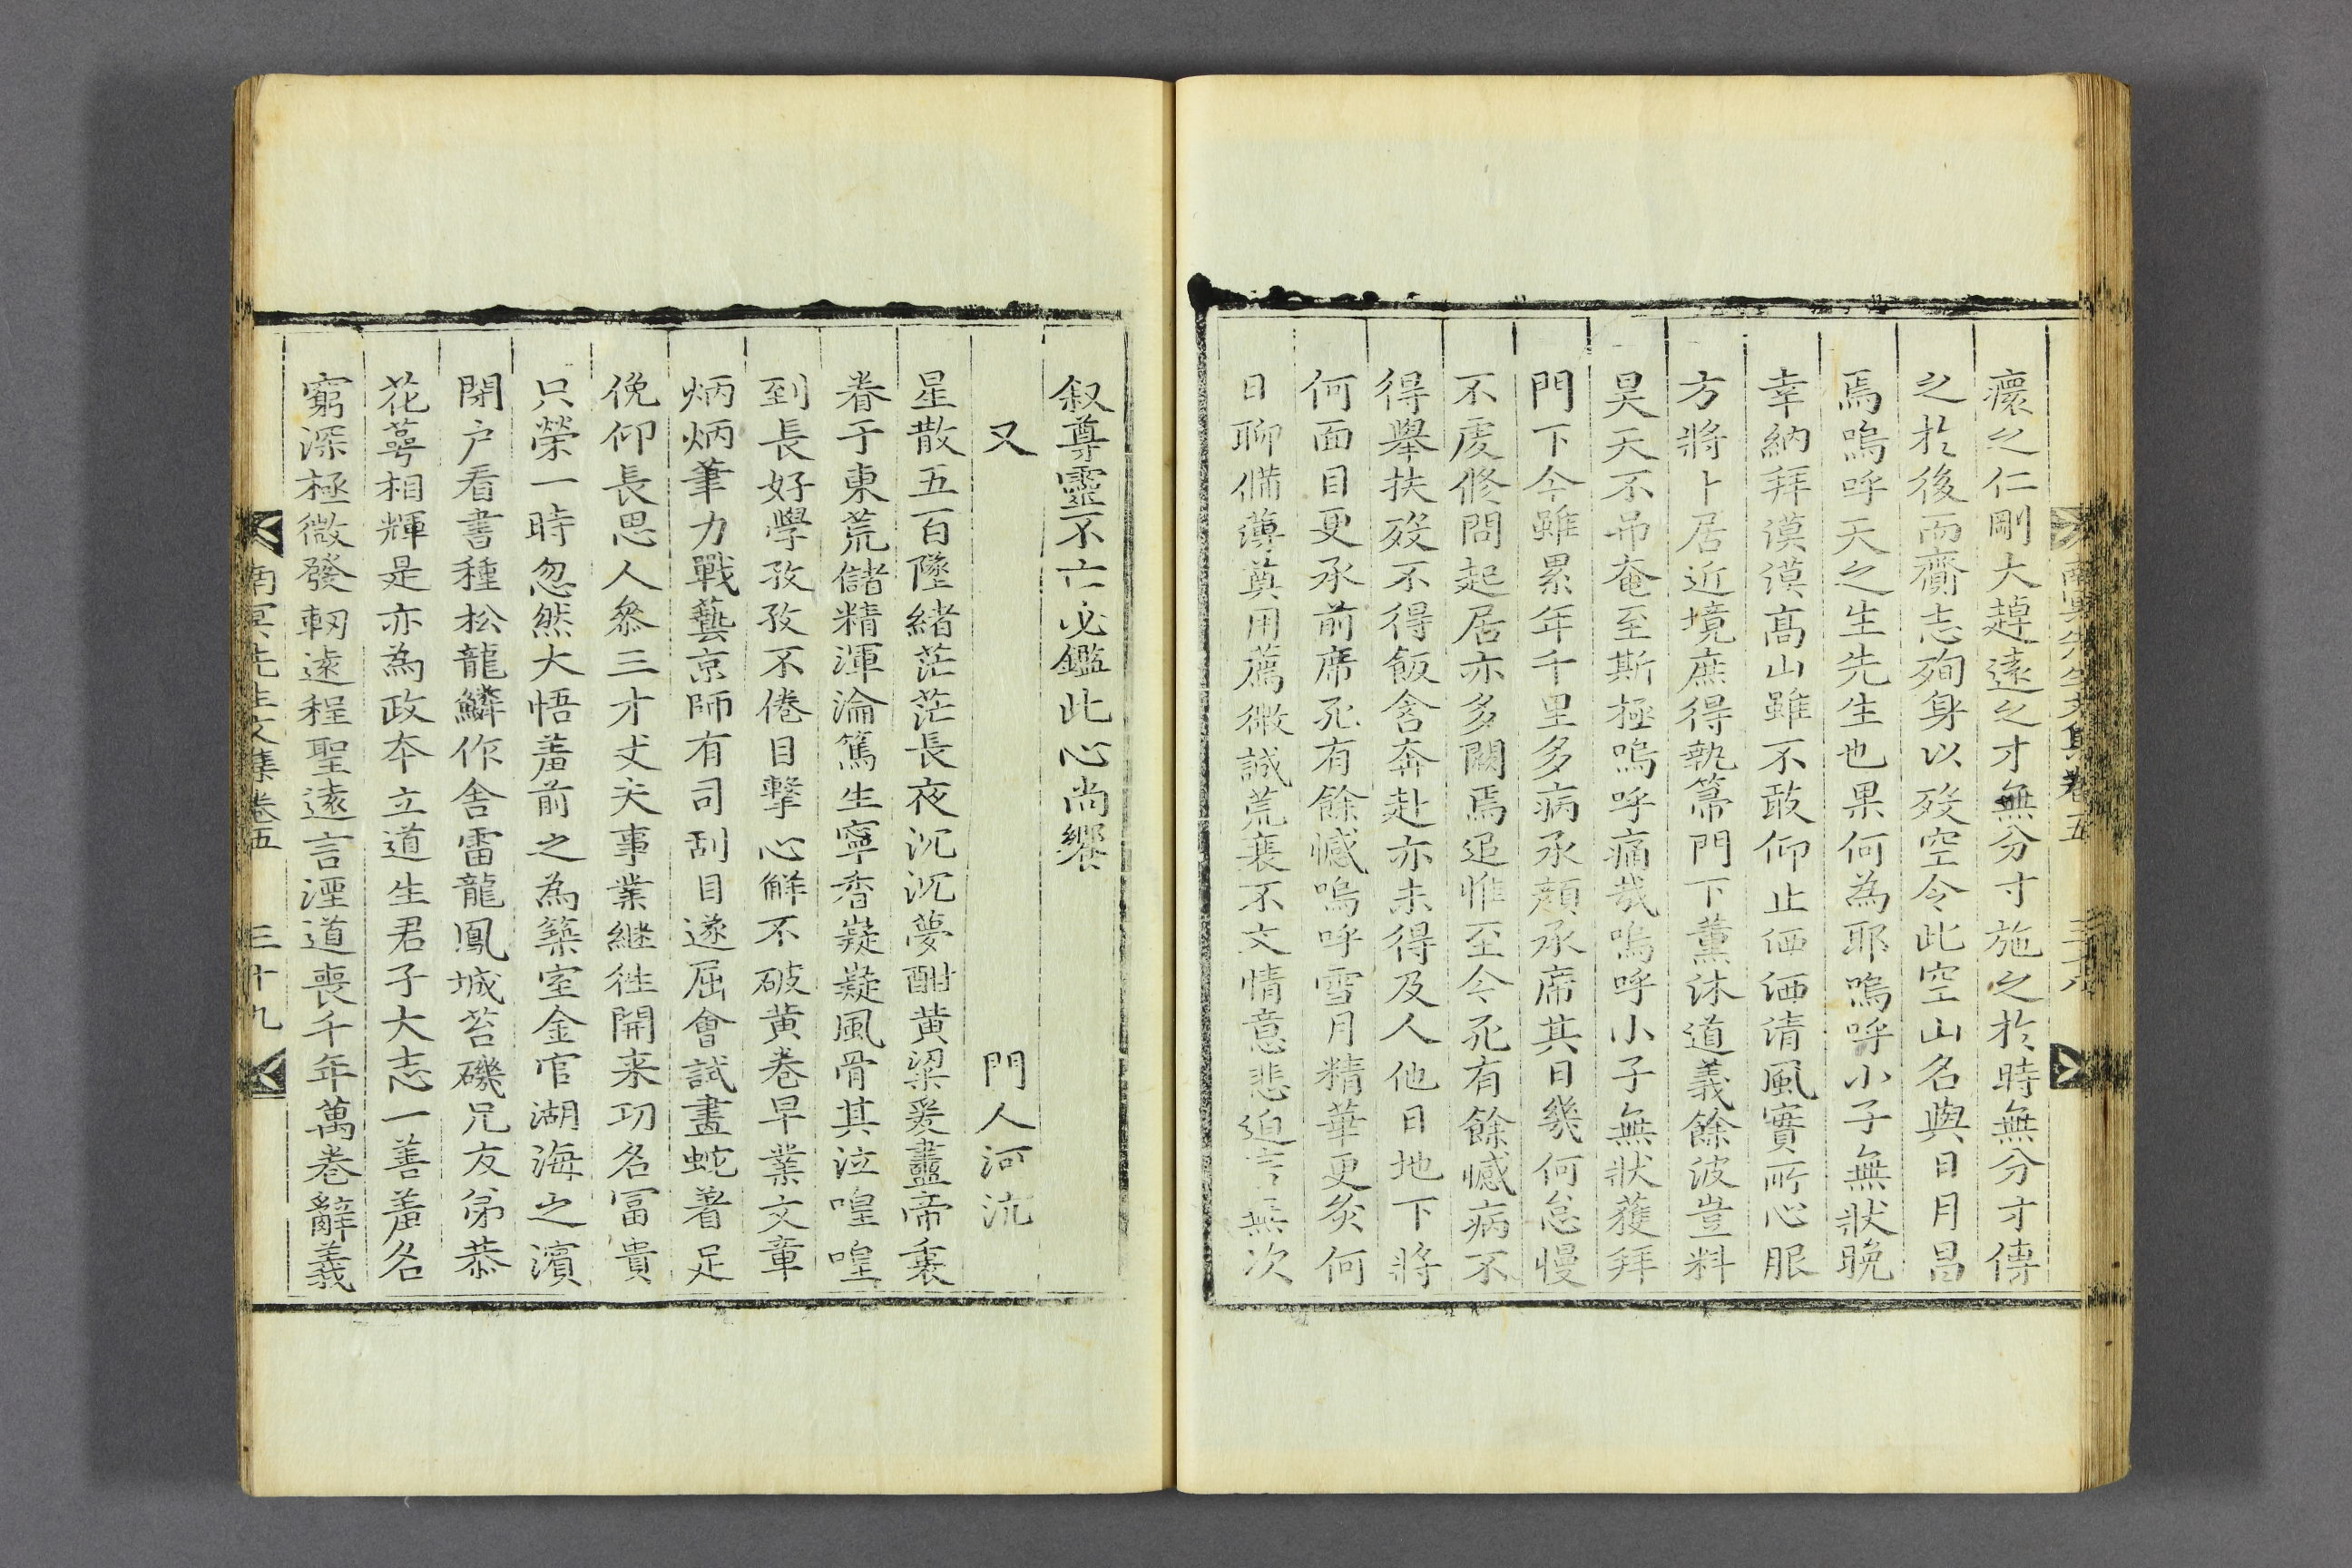 南冥先生文集卷五
瘝之仁剛大踔遠之才無分寸施之於時無分才傳
之於後而齎志殉身以歿空令此空山名與日月昌
焉嗚呼天之生先生也果何為耶嗚呼小子無狀晚
幸納拜謨謨高山雖不敢仰止洒洒清風實所心服
方將卜居近境庶得執箒門下薰沐道義餘波豈料
昊天不吊奄至斯極嗚呼痛哉嗚呼小子無狀獲拜
門下今雖累年千里多病承顔承席其日幾何怠慢
不虔修問起居亦多闕焉追惟至今死有餘憾病不
得舉扶歿不得飯含奔赴亦未得及人他日地下將
何面目更承前席死有餘憾嗚呼雪月精華更炙何
日聊備薄奠用薦微誠荒裵不文情意悲迫言無次
叙尊靈不亡必鑑此心尚饗
又 門人河沆
星散五百墜緒茫茫長夜沉沉夢酣黄粱爰盡帝衷
眷于東荒儲精渾淪篤生寧香嶷嶷風骨其泣喤喤
到長好學孜孜不倦目擊心解不破黄卷早業文章
炳炳筆力戰藝京師有司刮目遂屈會試畫蛇着足
俛仰長思人叅三才丈夫事業継徃開来功名冨貴
只榮一時忽然大悟羞前之為築室金官湖海之濱
閉户看書種松龍鱗作舎雷龍鳳城苔磯兄友弟恭
花萼相輝是亦為政本立道生君子大志一善羞名
窮深極微發軔遠程聖遠言湮道喪千年萬卷辭義
南冥先生文集卷五 三十九